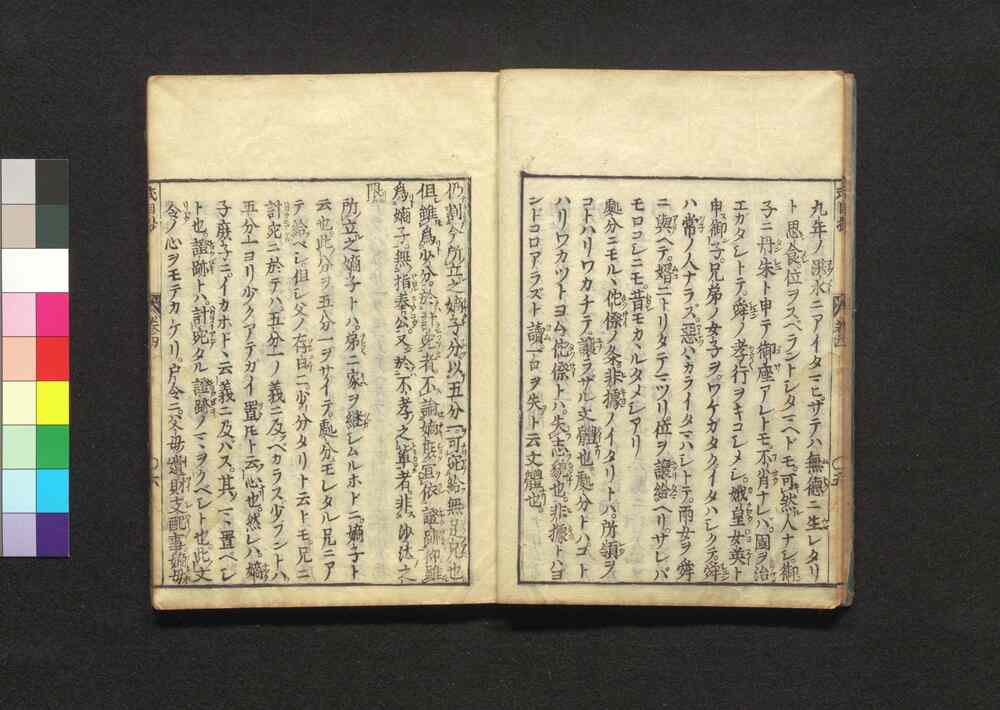 九年ノ洪水ニアイタマヒサテハ無徳ニ生レタリ
ト思食位ヲスベラントシタマヘドモ。可然人ナシ御
子ニ丹朱ト申テ御座アレトモ。不肖ナレハ國ヲ治
エガタシトテ。舜ノ孝行ヲキコシメシ。娥皇女英ト
申御子。兄弟ノ女子ヲ。ワケガタクイタハシクテ。舜
ハ常ノ人ナラズ。惡ハカライタマハシトテ。両女ヲ舜
ニ與ヘテ。婿ニトリタテマツリ。位ヲ讓給ヘリサレバ
モロコシニモ。昔モカヽルタメシアリ
處分ニモル、侘傺ノ条。非據ノイタリトハ。所領ヲ
コトハリワカチテ。讓ラザル文體也。處分トハコト
ハリワカツトヨム。侘傺トハ。失志㒵也。非據トハヨ
ンドコロアラズト讀一ロヲ失ト云文體也。
仍割今所立之嫡子分以五分一可充給無足兄也
但雖爲少分。於計充者。不論嫡庶宜依證跡抑雖
爲嫡子。無指奉公又。於不孝之輩者非沙汰之
限
所立之嫡子トハ。弟ニ家ヲ継シムルホトニ。嫡子ト
云也此分ヲ五分一ヲサイテ。處分モレタル兄ニア
テ給ベシ但シ父ノ存日ニ。少分タリト云トモ。兄ニ
計充ニ於テハ。五分一ノ義ニ及ベカラス少ブントハ
五分一ヨリ少クアテガイ置圧ト云心也。然レハ嫡
子庶子ニ。イカホドヽ云義ニ及バス。其マヽ置ベシ
ト也。證跡トハ。計充タル證跡ノマヽヲクベシト也此文
令ノ心ヲモテカケリ。戸令ニ。父母遺財支配事嫡母